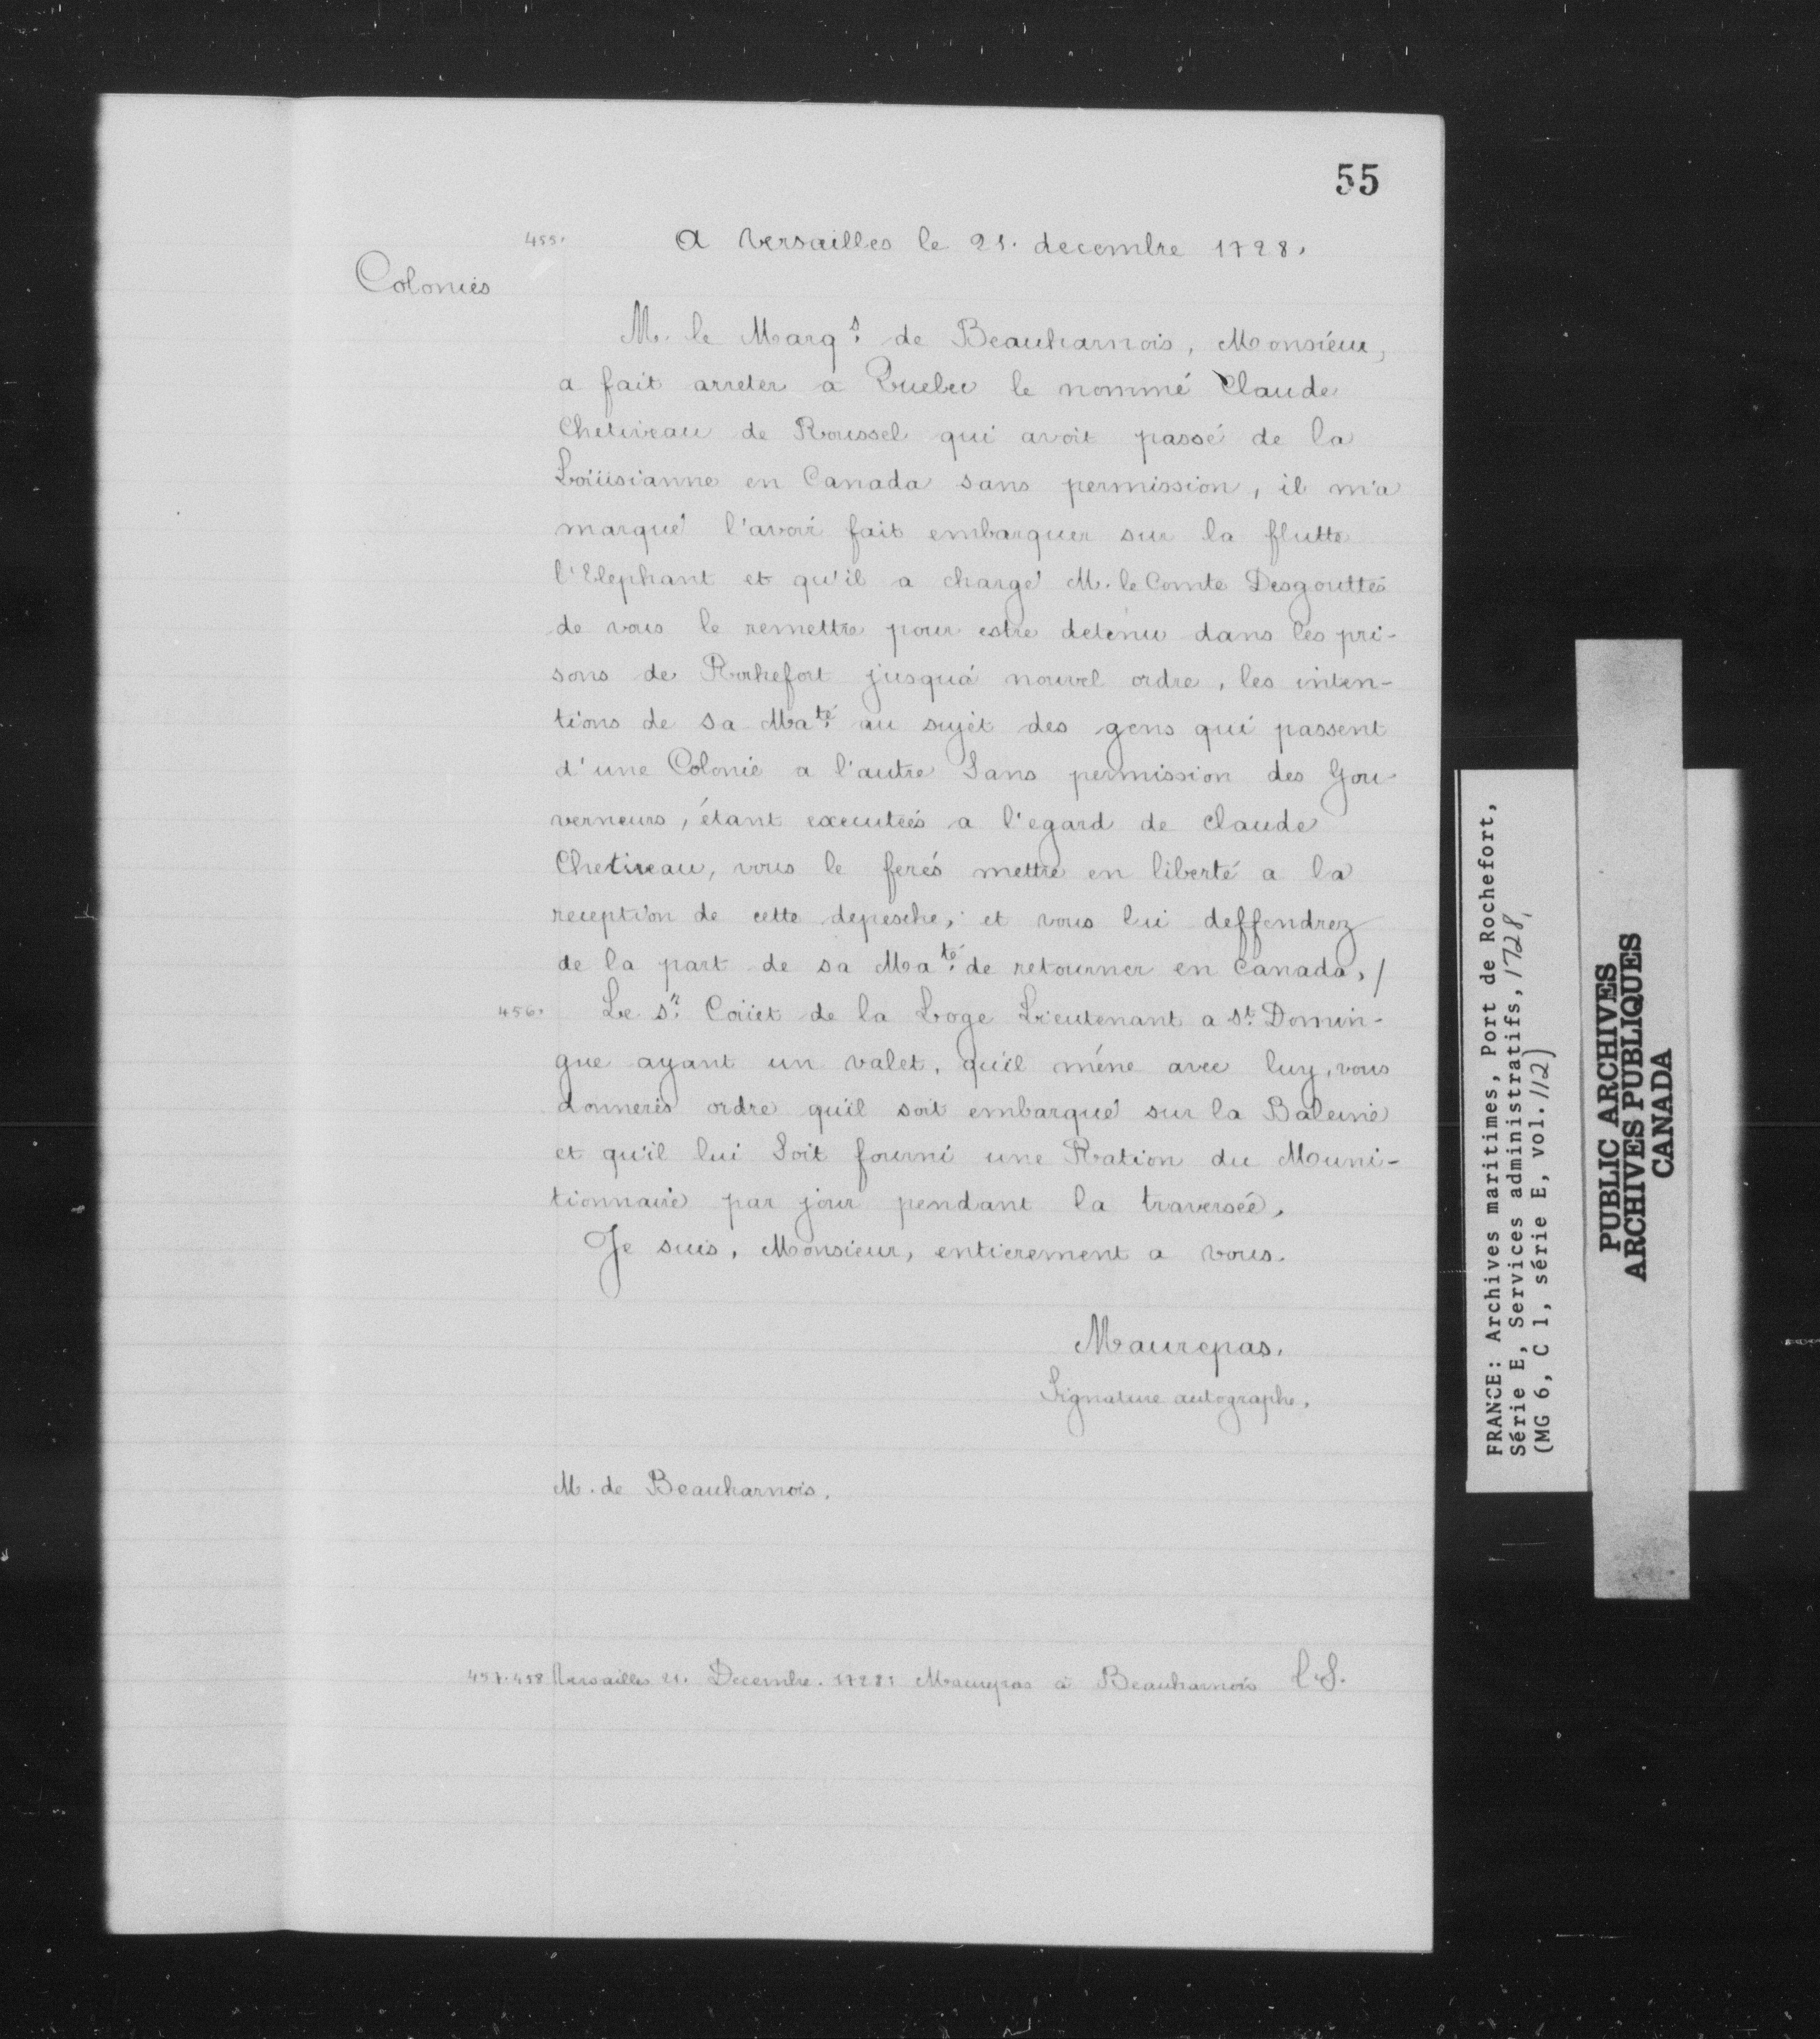 55
455. A versailles le 21. decembre 1728.
Colonies
M. le Marq.s de Beauharnois, Monsieur,
a fait arreter a Quebec le nommé Claude
Chetiveau de Roussel qui avoit passé de la
Loüisianne en Canada sans permission, il m'a
marqué l'avoir fait embarquer sur la flutte
l'Elephant et qu'il a chargé M. le Comte Desgouttes
de vous le remettre pour estre detenu dans les pri-
sons de Rochefort jusqu'á nouvel ordre, les inten-
tions de sa Ma.té au sujet des gens qui passent
d'une Colonie a l'autre Sans permission des Gou-
verneurs, étant executées a l'egard de claude
Chetiveau, vous le ferés mettre en liberté a la
reception de cette depesche, et vous lui deffendrez
de la part de sa Ma.té de retourner en Canada, /
456. Le s.r Coüet de la Loge Lieutenant a st. Domin-
gue ayant un valet, qu'il méne avec luy, vous
donnerés ordre qu'il soit embarqué sur la Baleine
et qu'il lui Soit fourni une Ration du Muni-
tionnaire par jour pendant la traversée.
Je suis, Monsieur, entierement a vous.
Maurepas.
Signature autographe.
M. de Beauharnois.
457.458 Versailles 21. Decembre. 1728: Maurepas à Beauharnois L.S.
FRANCE: Archives maritimes, Port de Rochefort,
Série E, Services administratifs, 1728,
(MG 6, C 1, série E, vol. 112)
PUBLIC ARCHIVES
ARCHIVES PUBLIQUES
CANADA